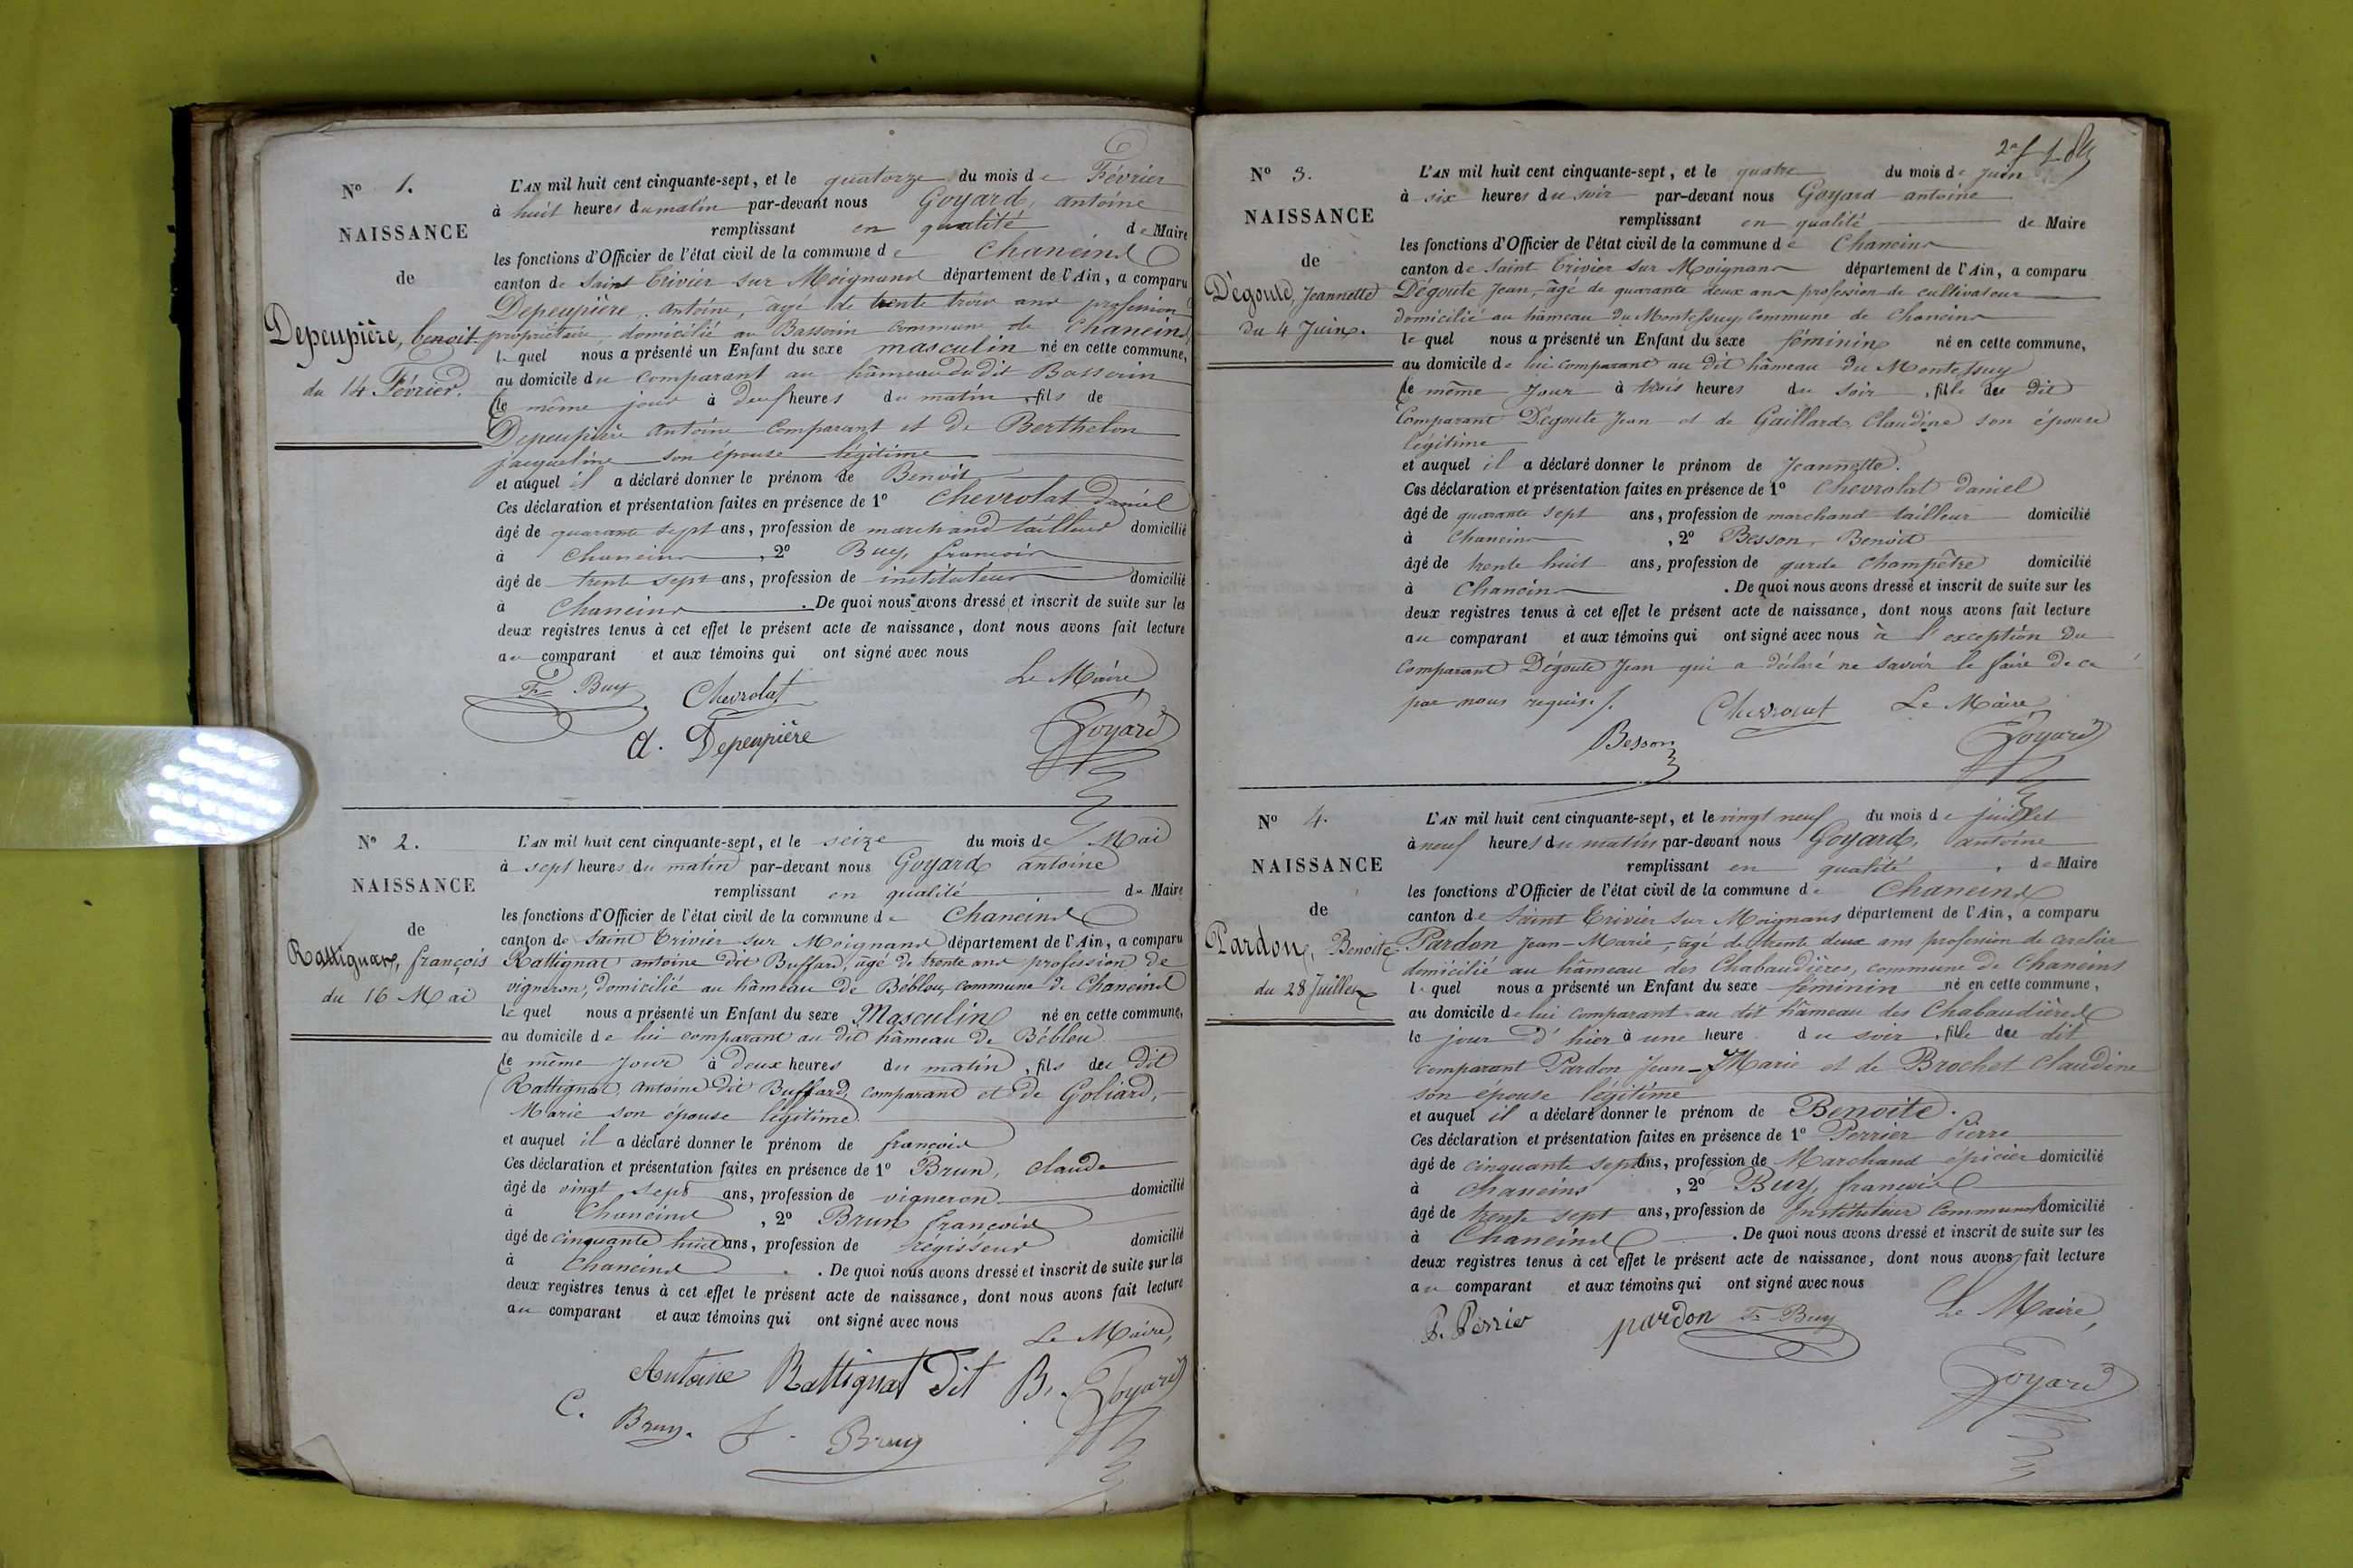 N° 1.
NAISSANCE
de
Depeupière, benoit
du 14 Février.
L'AN mil huit cent cinquante-sept, et le quatorze du mois de Février
à huit heures du matin par-devant nous Goyard, antoine
remplissant en qualité de Maire
les fonctions d'Officier de l'état civil de la commune de Chaneins
canton de Saint Trivier sur Moignans département de l'Ain, a comparu
Depeupière, antoine, âgé de trente trois ans profession
propriétaire, domicilié au Bassoin commune de Chaneins
lequel nous a présenté un Enfant du sexe masculin né en cette commune,
au domicile du comparant au hâmeau du dit Bassoin
le même jour à deux heures du matin, fils de
Depeupière antoine comparant et de Berthelon
jacqueline son épouse légitime
et auquel il a déclaré donner le prénom de Benoit
Ces déclaration et présentation faites en présence de 1° Chevrolat Daniel
âgé de quarante sept ans, profession de marchand tailleur domicilié
à Chaneins, 2° Buy, francois
âgé de trente sept ans, profession de instituteur domicilié
à Chaneins. De quoi nous avons dressé et inscrit de suite sur les
deux registres tenus à cet effet le présent acte de naissance, dont nous avons fait lecture
au comparant et aux témoins qui ont signé avec nous
Le Maire
Fr Buy Chevrolat
A. Depeupière Goyard
N° 2.
NAISSANCE
de
Rattignat, françois
du 16 Mai
L'AN mil huit cent cinquante-sept, et le seize du mois de Mai
à sept heures du matin par-devant nous Goyard antoine
remplissant en qualité de Maire
les fonctions d'Officier de l'état civil de la commune de Chaneins
canton de Saint Trivier sur Moignans département de l'Ain, a comparu
Rattignat antoine dit Buffard, âgé de trente ans profession de
vigneron, domicilié au hâmeau de Béblou, commune de Chaneins
lequel nous a présenté un Enfant du sexe Masculin né en cette commune,
au domicile de lui comparant au dit hâmeau de Béblou
le même jour à deux heures du matin, fils du dit
Rattignat, antoine dit Buffard, comparant et de Goliard,
Marie son épouse légitime
et auquel il a déclaré donner le prénom de françois
Ces déclaration et présentation faites en présence de 1° Brun, claude
âgé de vingt sept ans, profession de vigneron domicilié
à Chaneins, 2° Brun françois
âgé de cinquante huit ans, profession de régisseur domicilié
à Chaneins. De quoi nous avons dressé et inscrit de suite sur les
deux registres tenus à cet effet le présent acte de naissance, dont nous avons fait lecture
au comparant et aux témoins qui ont signé avec nous
Le Maire,
Antoine Rattignat Dit B. Goyard
C. Brun. f. Brun
N° 3.
NAISSANCE
de
Dégoute, Jeannette
du 4 Juin.
L'AN mil huit cent cinquante-sept, et le quatre du mois de juin
à six heures du soir par-devant nous Goyard antoine
remplissant en qualité de Maire
les fonctions d'Officier de l'état civil de la commune de Chaneins
canton de Saint Trivier sur Moignans département de l'Ain, a comparu
Dégoute Jean, âgé de quarante deux ans profession de cultivateur
domicilié au hâmeau du Montessuy, commune de Chaneins
lequel nous a présenté un Enfant du sexe féminin né en cette commune,
au domicile de lui comparant au dit hâmeau du Montessuy
le même jour à trois heures du soir, fille du dit
Comparant Dégoute Jean et de Gaillard, Claudine son épouse
légitime
et auquel il a déclaré donner le prénom de Jeannette.
Ces déclaration et présentation faites en présence de 1° Chevrolat daniel
âgé de quarante sept ans, profession de marchand tailleur domicilié
à Chaneins, 2° Besson, Benoit
âgé de trente huit ans, profession de garde champêtre domicilié
à Chaneins. De quoi nous avons dressé et inscrit de suite sur les
deux registres tenus à cet effet le présent acte de naissance, dont nous avons fait lecture
au comparant et aux témoins qui ont signé avec nous à l'exception du
comparant Dégoute Jean qui a déclaré ne savoir le faire de ce
par nous requis./.
Chevrolat Le Maire
Besson Goyard
N° 4.
NAISSANCE
de
Pardon, Benoite
du 28 Juillet
L'AN mil huit cent cinquante-sept, et le vingt neuf du mois de juillet
à neuf heures du matin par-devant nous Goyard, antoine
remplissant en qualité de Maire
les fonctions d'Officier de l'état civil de la commune de Chaneins
canton de Saint Trivier sur Moignans département de l'Ain, a comparu
Pardon Jean-Marie, âgé de trente deux ans profession de cerclier
domicilié au hâmeau des Chabaudières, commune de Chaneins
lequel nous a présenté un Enfant du sexe féminin né en cette commune,
au domicile de lui comparant au dit hâmeau des Chabaudières
le jour d'hier à une heure du soir, fille du dit
comparant Pardon Jean-Marie et de Brochet Claudine
son épouse légitime
et auquel il a déclaré donner le prénom de Benoite.
Ces déclaration et présentation faites en présence de 1° Perrier Pierre
âgé de cinquante sept ans, profession de Marchand épicier domicilié
à Chaneins, 2° Buy, francois
âgé de trente sept ans, profession de Instituteur Communal domicilié
à Chaneins. De quoi nous avons dressé et inscrit de suite sur les
deux registres tenus à cet effet le présent acte de naissance, dont nous avons fait lecture
au comparant et aux témoins qui ont signé avec nous
P. Perrier pardon Fr Buy Le Maire,
Goyard